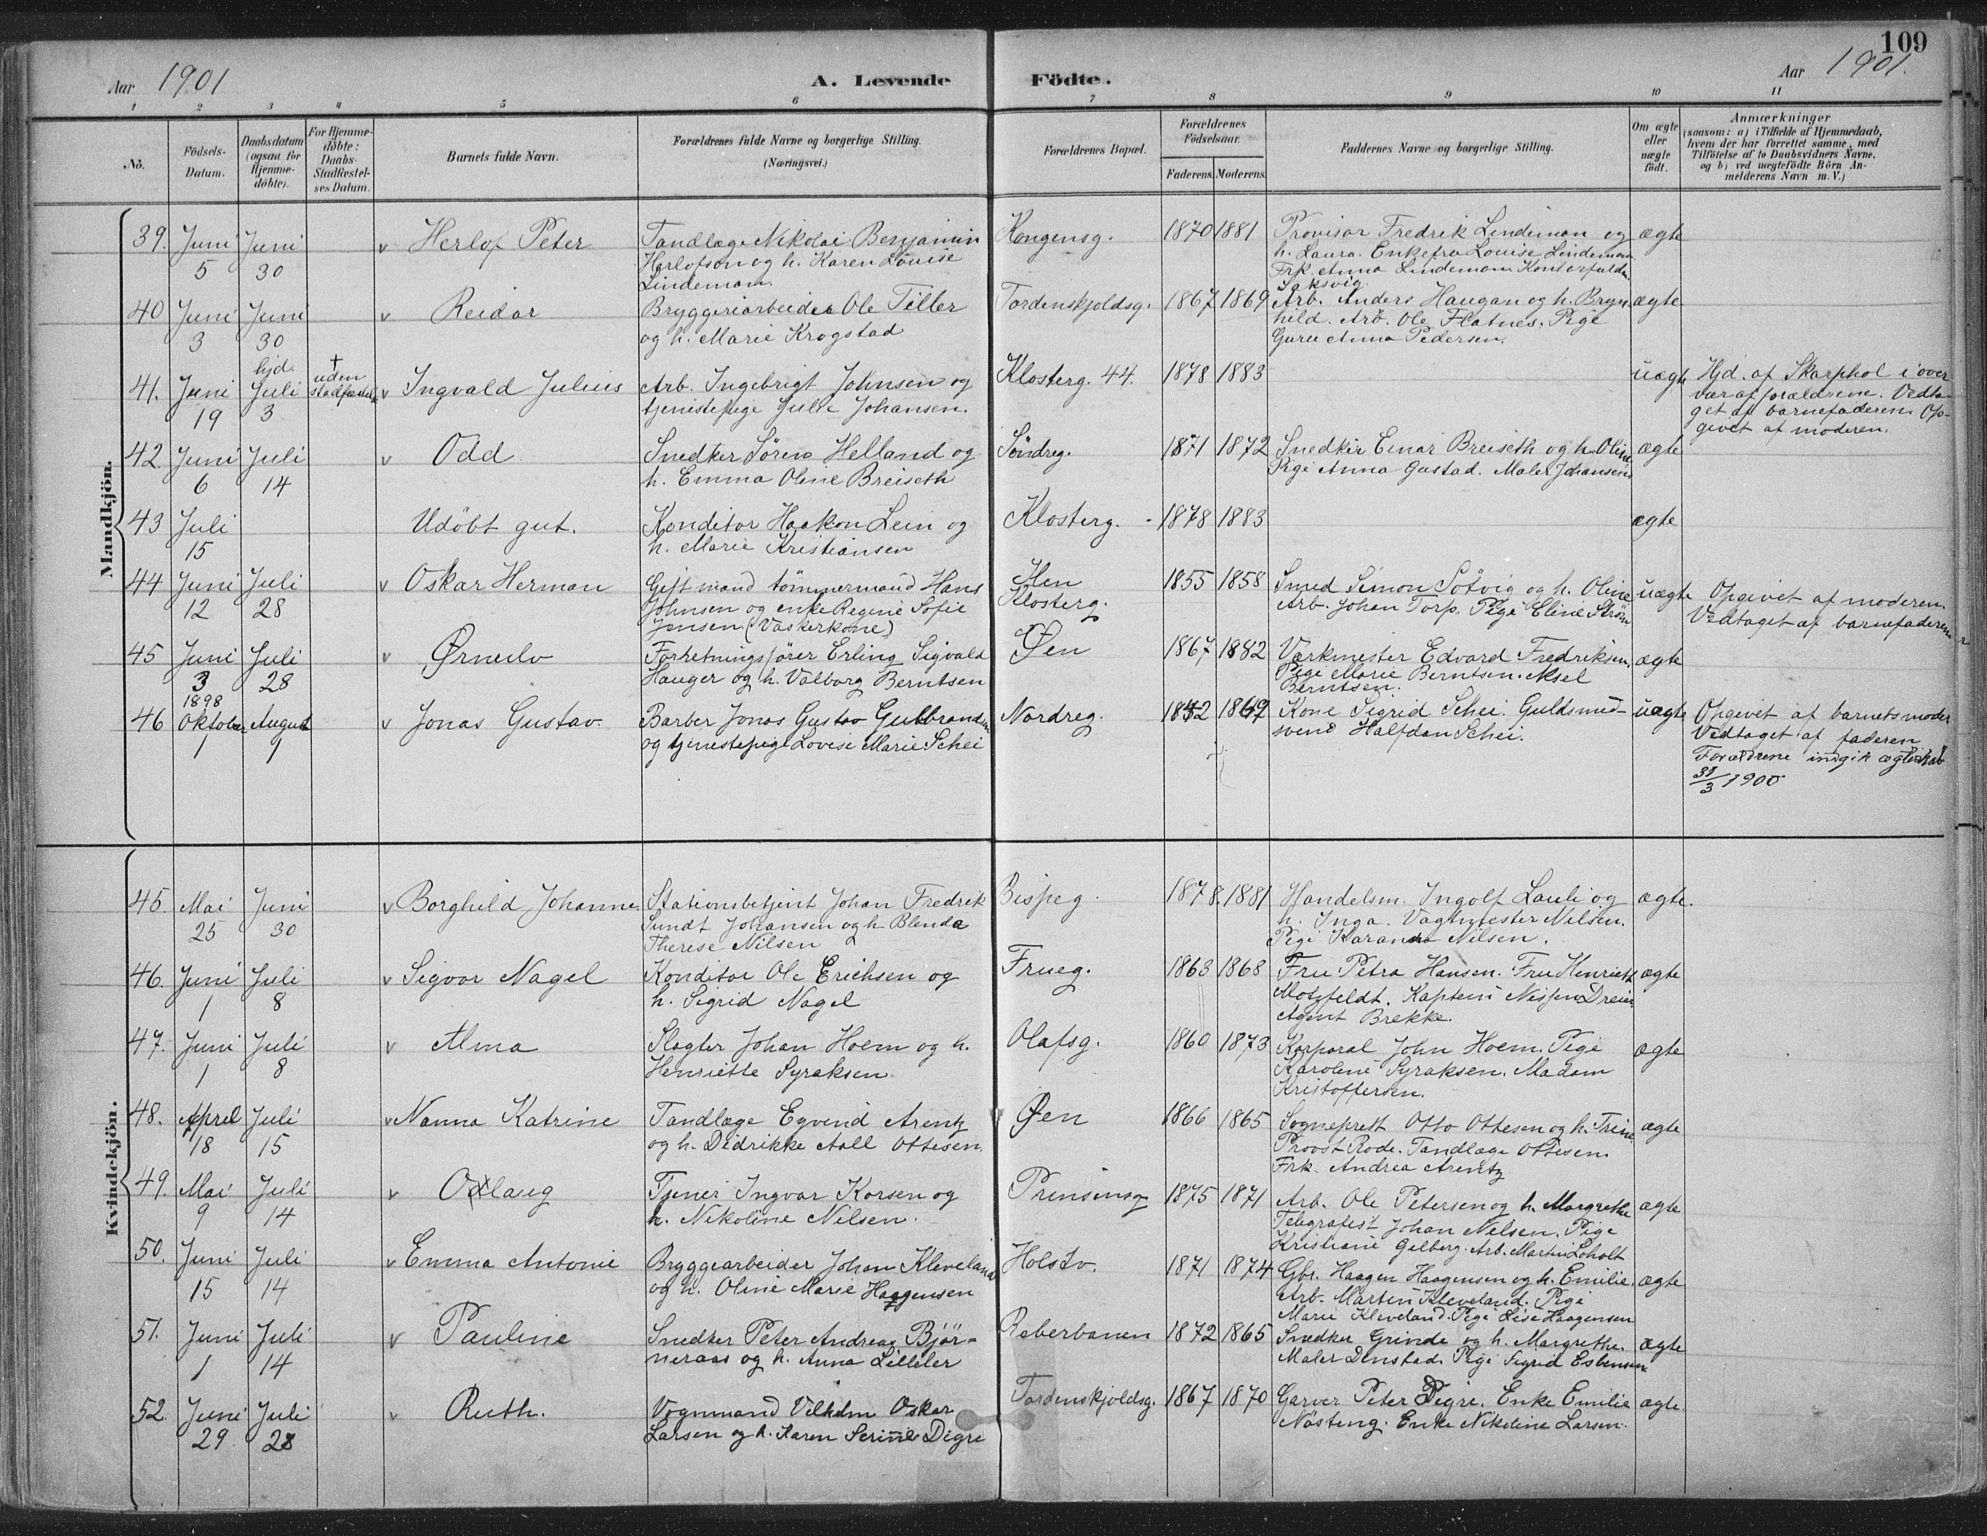 109
Aar 1901
A. Levende Födte.
Aar 1901.
1 2 3 4 5 6 7 8 9 10 11
No.
Födsels-
Datum.
Daabsdatum
(ogsaa for
Hjemme-
döbte).
For Hjemme-
döbte:
Daabs-
Stadfæstel-
ses Datum.
Barnets fulde Navn.
Forældrenes fulde Navne og borgerlige Stilling.
(Næringsvei.)
Forældrenes Bopæl.
Forældrenes
Födselsaar.
Faderens. Moderens.
Faddernes Navne og borgerlige Stilling.
Om ægte
eller
uægte
födt.
Anmærkninger
(saasom: a) i Tilfælde af Hjemmedaab,
hvem der har forrettet samme, med
Tilföielse af to Daabsvidners Navne,
og b) ved uægtefödte Börn An-
melderens Navn m. V.)
Mandkjön.
39. Juni Juni v Herlof Peter Tandlæge Nikolai Benjamin Kongensg. 1870 1881 Provisor Fredrik Lindeman og ægte
5 30 Herlofson og h. Karen Louise h. Laura. Enkefru Louise Lindeman
Lindeman Frk. Anna Lindeman Kontorfuldm
Saksvig.
40 Juni Juni v Reidar Bryggeriarbeider Ole Tiller Tordenskjoldsg. 1867 1869 Arb. Anders Haugan og h. Bryn ægte
3 30 og h. Marie Krogstad hild. Arb. Ole Flatnes. Pige
Guru Anna Pedersen.
hjd. +
41. Juni Juli uden v Ingvald Julius Arb. Ingebrigt Johnsen og Klosterg. 44. 1878 1883 uægte Hjd. af Skarphol i over
19 3 tjenestepige Julie Johansen. vær af forældrene. Vedta-
get af barnefaderen Op-
givet af moderen.
42. Juni Juli v Odd Snedker Sören Helland og Söndreg. 1871 1872 Snedker Einar Breiseth og h. Oline ægte
6 14 h. Emma Oline Breiseth Pige Anna Gustad. Maler Johansen
43 Juli Udöbt gut. Konditor Haakon Lein og Klosterg. 1878 1883 ægte
15 h. Marie Kristiansen
44 Juni Juli v Oskar Herman Gift mand tömmermand Hans Ilen 1855 1858 Smed Simon Sötvig og h. Oline uægte Opgivet af moderen.
12 28 Johnsen og enke Regine Sofie Klosterg. Arb. Johan Torp. Pige Eline Ström Vedtaget af barnefaderen
Jensen (Vaskerkone)
45 Juni Juli v Ørnulv Forretningsförer Erling Sigvald Øen 1867 1882 Værkmester Edvard Fredriksen. ægte
3 28 Hauger og h. Valborg Berntsen Pige Marie Berntsen. Aksel
Berntsen.
1898
46 Oktober August v Jonas Gustav Barber Jonas Gustav Gulbrandsen Nordreg. 1852 1869 Kone Sigrid Schei. Guldsmed- uægte Opgivet af barnets moder
1 9 og tjenestepige Lovise Marie Schei svend Halfdan Schei. Vedtaget af faderen
Forældrene indgik ægteskab
31/3 1900
Kvindekjön.
45. Mai Juni v Borghild Johanne Stationsbetjent Johan Fredrik Bispeg. 1878. 1881 Handelsm. Ingolf Lauli og ægte.
25 30 Sundt Johansen og h. Blenda h. Inga. Vagtmester Nilsen.
Therese Nilsen Pige Karanna Nilsen.
46. Juni Juli v Sigvor Nagel Konditor Ole Erichsen og Frueg. 1863 1868 Fru Petra Hansen. Fru Henriette ægte
1 8 h. Sigrid Nagel Motzfeldt. Kaptein Nissen Dreier
Agent Brekke.
47. Juni Juli v Alma Slagter Johan Hoem og h. Olafsg. 1860 1873 Korporal John Hoem. Pige ægte
1 8 Henriette Syraksen. Karoline Syraksen. Madam
Kristoffersen.
48. April Juli v Nanna Katrine Tandlæge Eyvind Arentz Øen 1866 1865 Sogneprest Otto Ottesen og h. Trine ægte
18 15 og h. Didrikke Aall Ottesen. Provst Rode. Tandlæge Ottesen.
Frk. Andrea Arentz
49. Mai Juli v Oxlaug Tjener Ingvar Korsen og Prinsensg 1875 1871 Arb. Ole Petersen og h. Margrethe ægte
9 14 h. Nikoline Nilsen. Telegrafist Johan Nilsen. Pige
Kristiane Gelberg. Arb. Martin Loholt
50. Juni Juli v Emma Antonie Bryggearbeider Johan Kleveland Holstv. 1871 1874 Gbr. Haagen Haagensen og h. Emilie. ægte
15 14 og h. Oline Marie Haagensen Arb. Martin Kleveland. Pige
Marie Kleveland. Pige Lise Haagensen
51. Juni Juli v Pauline Snedker Peter Andreas Björ- Reberbanen 1872 1865 Snedker Grinde og h. Margrethe. ægte
1 14 neraas og h. Anna Lilleler Maler Dinstad. Pige Sigrid Esbensen
52. Juni Juli v Ruth. Vognmand Vilhelm Oskar Tordenskjoldsg. 1867 1870 Garver Peter Digre. Enke Emilie ægte.
29 28 Larsen og h. Karen Serine Digre Nösting. Enke Nikoline Larsen.